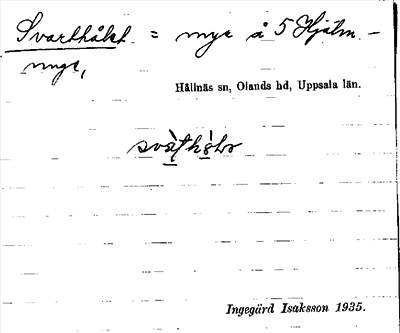 Svarthålet = myr å 5 Hjälm-
unge,
Hållnäs sn, Olands hd, Uppsala län.
Ingegärd Isaksson 1935.